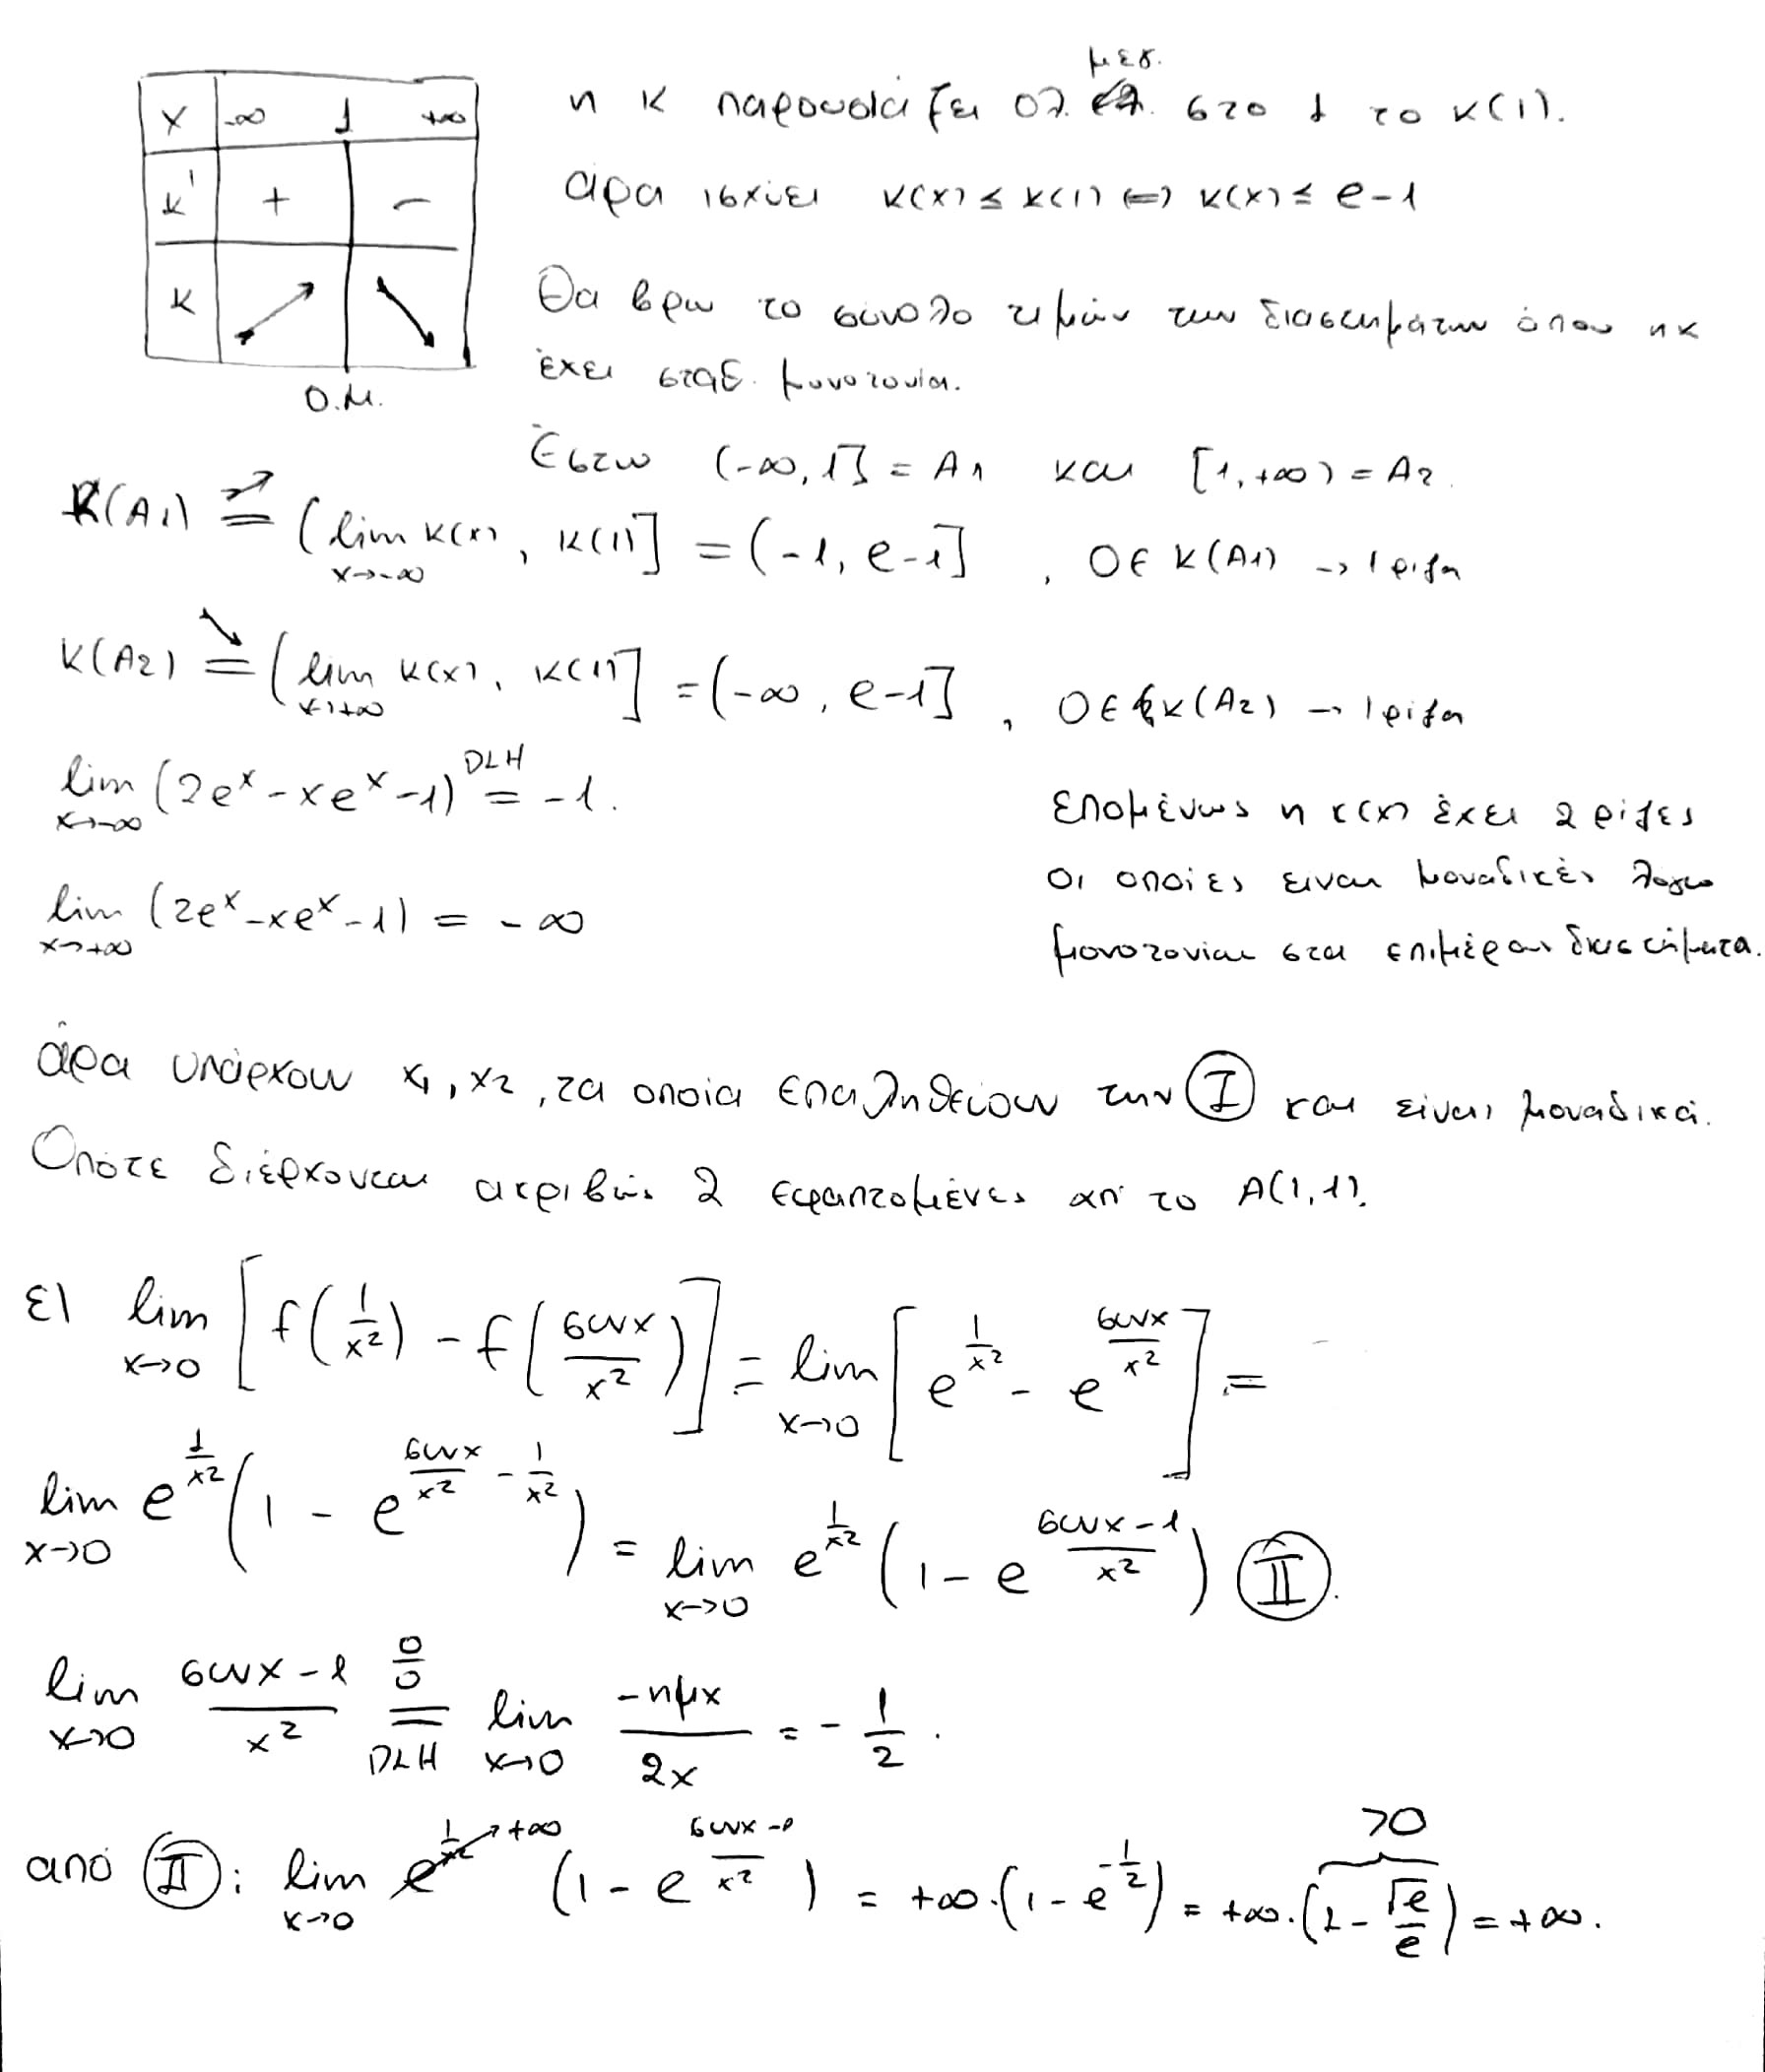 η κ παρουσιάζει ολ. μεγ. στο 1 το κ(1).
x -∞ 1 +∞
κ' + -
κ
Ο.Μ.
άρα ισχύει κ(x) ≤ κ(1) ⇔ κ(x) ≤ e-1
Θα βρω το σύνολο τιμών των διαστημάτων όπου η κ
έχει σταθ. μονοτονία.
Έστω (-∞, 1] = A1 και [1, +∞) = A2.
κ(A1) = (lim x→-∞ κ(x), κ(1)] = (-1, e-1], 0 ∈ κ(A1) → 1 ρίζα
κ(A2) = (lim x→+∞ κ(x), κ(1)] = (-∞, e-1], 0 ∈ κ(A2) → 1 ρίζα
lim x→-∞ (2e^x - xe^x - 1) DLH = -1.
lim x→+∞ (2e^x - xe^x - 1) = -∞
Επομένως η κ(x) έχει 2 ρίζες
οι οποίες είναι μοναδικές λόγω
μονοτονίας στα επιμέρους διαστήματα.
άρα υπάρχουν x1, x2, τα οποία επαληθεύουν την (I) και είναι μοναδικά.
Οπότε διέρχονται ακριβώς 2 εφαπτομένες απ' το A(1,1).
ε) lim x→0 [f(1/x²) - f(συνx/x²)] = lim x→0 [e^(1/x²) - e^(συνx/x²)] =
lim x→0 e^(1/x²) (1 - e^(συνx/x² - 1/x²)) = lim x→0 e^(1/x²) (1 - e^((συνx-1)/x²)) (II).
lim x→0 (συνx-1)/x² 0/0 = DLH lim x→0 -ημx/2x = -1/2.
από (II): lim x→0 e^(1/x²) → +∞ (1 - e^((συνx-1)/x²)) = +∞·(1 - e^(-1/2)) = +∞·(1 - √e/e) >0 = +∞.